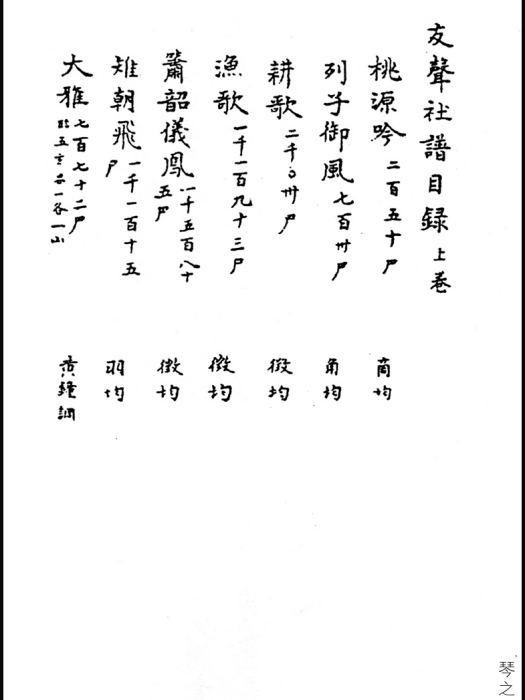 友聲社譜目録 上卷
桃源吟 二百五十尸 商均
列子御風 七百卅尸 角均
耕歌 二千〇卅尸 徵均
漁歌 一千一百九十三尸 徵均
簫韶儀鳳 一千五百八十五尸 徵均
雉朝飛 一千一百十五尸 羽均
大雅 七百七十二尸 黃鐘調
琴之